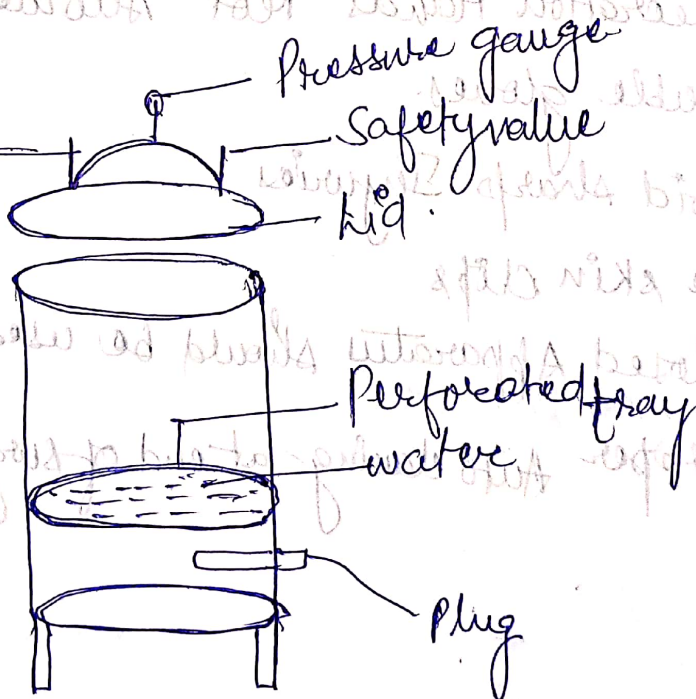 Pressure gauge
Safetyvalue
Lid.
Perforatedtray
water
Plug